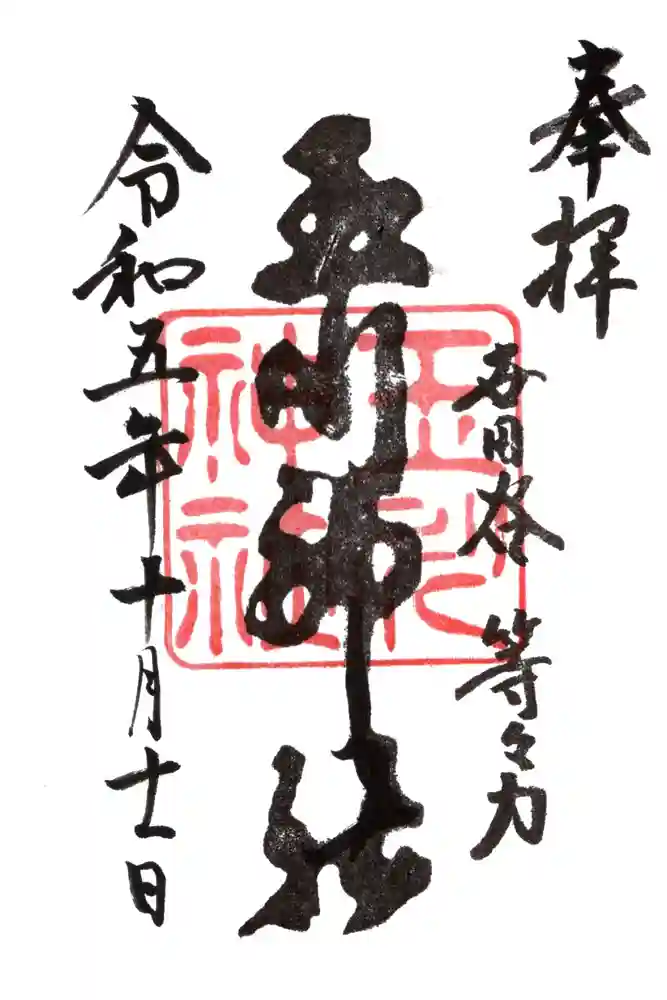 奉拝
世田谷 等々力
玉川神社
玉川
神社
令和五年十月十一日